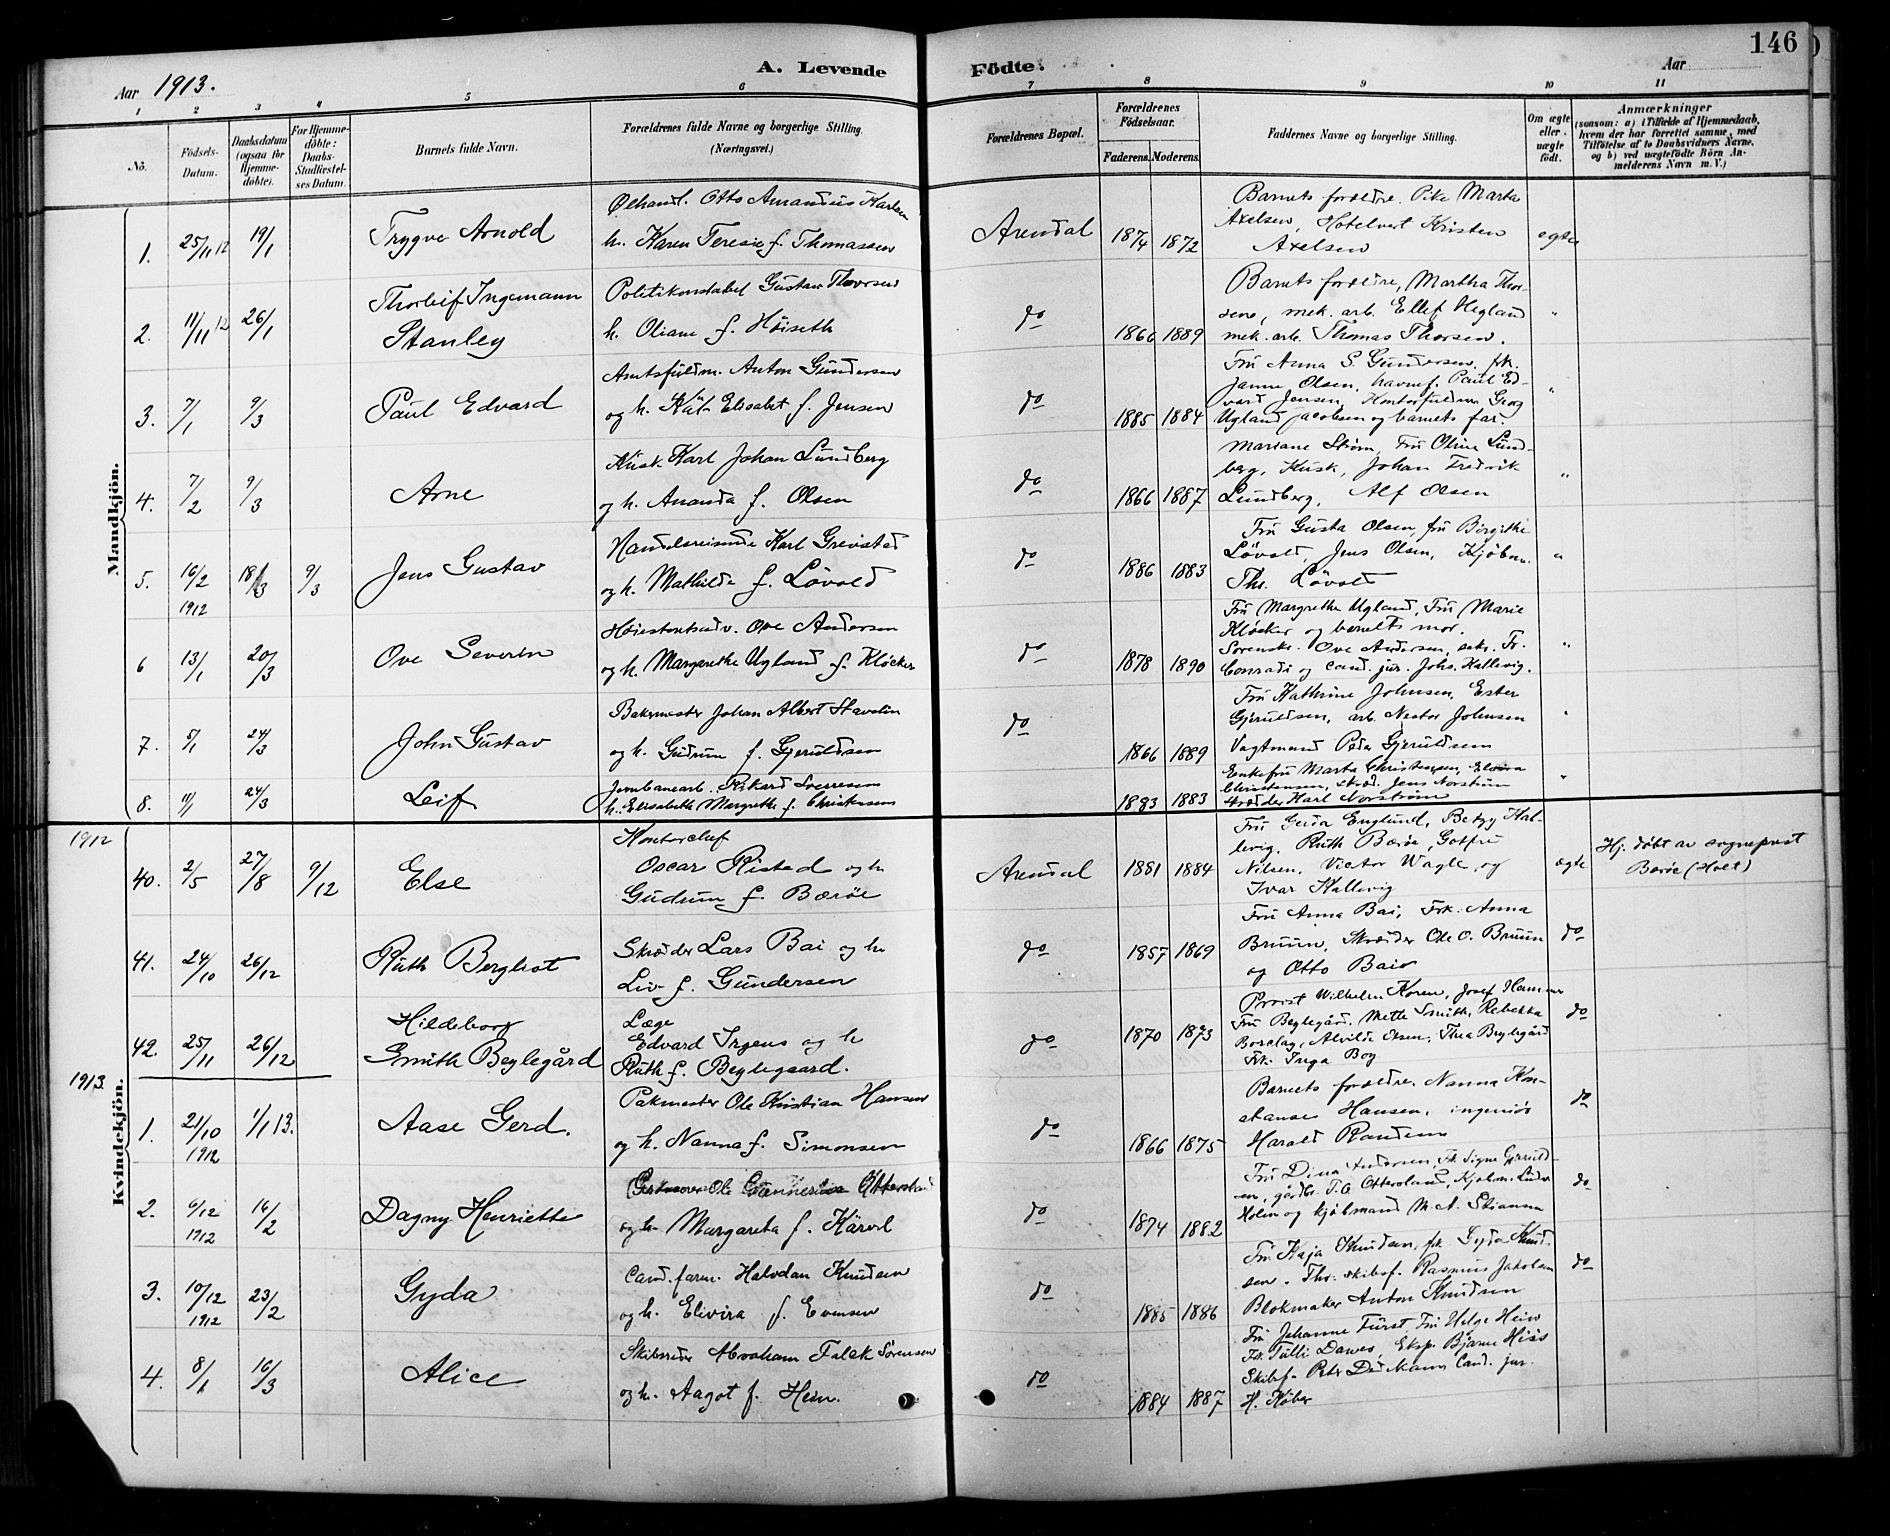 146
A. Levende Födte.
Aar 1913.
Aar
1 2 3 4 5 6 7 8 9 10 11
No.
Födsels-Datum.
Daabsdatum (ogsaa for Hjemme-döbte).
For Hjemme-döbte: Daabs-Stadfæstel-ses Datum.
Barnets fulde Navn.
Forældrenes fulde Navne og borgerlige Stilling. (Næringsvei.)
Forældrenes Bopæl.
Forældrenes Födselsaar.
Faderens. Moderens.
Faddernes Navne og borgerlige Stilling.
Om ægte eller uægte födt.
Anmærkninger
(saasom: a) i Tilfælde af Hjemmedaab, hvem der har forrettet samme, med Tilföielse af to Daabsvidners Navne, og b) ved uægtefödte Börn An-melderens Navn m. V.)
Mandkjön.
1. 25/11 12 19/1 Trygve Arnold
Ølhandl. Otto Amandus Karlsen
h. Karen Teresie f. Thomassen
Arendal 1874 1872
Barnets foreldre. Pike Marta
Axelsen, Hotelvert Kristen
Axelsen
egte
2. 11/11 12 26/1 Thorleif Ingemann
Stanley
Politikonstabel Gustav Thorsen
h. Oliane f. Høiseth
do 1866 1889
Barnets foreldre, Martha Thor-
sen, mek. arb. Ellef Hegland
mek. arb. Thomas Thorsen.
"
3. 7/1 9/3 Paul Edvard
Amtsfuldm. Anton Gundersen
og h. Elisabet f. Jensen
do 1885 1884
Fru Anna S. Gundersen, frk.
Janne Olsen, Paul Ed-
vard Jensen, Kontorfuldm. Georg
Ugland Jacobsen og barnets far.
"
4. 7/2 9/3 Arne
Kusk Karl Johan Lundberg
og h. Ananda f. Olsen
do 1866 1887
Mariane Strøm, Fru Oline Lund-
berg, Kusk, Johan Fredrik
Lundberg, Alf Olsen
"
5. 16/2 1912 18/3 9/3 Jens Gustav
Handelsreisende Karl Grevstad
og h. Mathilde f. Løvold
do 1886 1883
Fru Gusta Olsen, fru Birgithe
Løvold Jens Olsen, Kjøbm.
Ths. Løvold
"
6 13/1 20/3 Ove Severin
Ove Andersen
og h. Margarethe Ugland f. Kløcker
do 1878 1890
Fru Margrethe Ugland, Fru Marie
Kløcker og barnets mor.
Sorenskr. Ove Andersen, sekr. Fr.
Conradi og cand. jur. Johs. Hallevig.
"
7. 5/1 24/3 John Gustav
Bakermester Johan Albert Stavelin
og h. Gudrun f. Gjeruldsen
do 1866 1889
Fru Kathrine Johnsen, Ester
Gjeruldsen, arb. Nestor Johnsen
Vagtmand Peder Gjeruldsen
"
8. 1/1 24/3 Leif
Jernbanearb. Rikard Sverresen
h. Elisabeth Margrethe f. Christensen
1883 1883
Enkefru Marta Christensen, Elvira
Christensen, skræd. Jens Norstrøm
skrædder Karl Norstrøm
"
1912
Kvindekjön.
40. 2/5 27/8 9/12 Else
Kontorchef
Oscar Ristad og h
Gudrun f. Bærøe
Arendal 1881 1884
Fru Gerda Englund, Betzy Hal-
levig, Ruth Bærøe, Gotfr.
Nilsen, Victor Wagle, og
Ivar Hallevig
ægte
Hj. døbt av sogneprest
Bærøe (Holt)
41. 24/10 26/12 Ruth Bergliot
Skræder Lars Bai og h
Liv f. Gundersen
do 1857 1869
Fru Anna Bai, Frk. Anna
Bruun, Skræder Ole O. Bruun
og Otto Bai
do
42. 25/11 26/12 Hildeborg
Smith Beylegård
Læge
Edvard Irgens og h
Ruth f. Beylegaard.
do 1870 1873
Provst Wilhelm Koren, Josef Hammer
Fru Beylegård, Mette Smith, Rebekka
Borclag, Alvilde Olsen, Thea Beylegård
Frk. Inga Boy
do
1913
1. 21/10 1912 1/1 13. Aase Gerd.
Pakmester Ole Kristian Hansen
og h. Nanna f. Simonsen
do 1866 1875
Barnets foreldre, Nanna Kon-
stanse Hansen, ingeniør
Harald
do
2. 9/12 1912 16/2 Dagny Henriette
Ole Otterstad
og h. Margareta f.
do 1874 1882
Fru Dina Andersen, Frk Signe Gjeruld-
sen,
Holm og kjøbmand M. A. Stiansen
do
3. 10/12 1912 23/2 Gyda
Cand. farm. Halvdan Knudsen
og h. Elivira f. Evensen
do 1885 1886
Fru Kaja Knudsen, frk Gyda Knud-
sen. Thv. skibsf. Rasmus Jakobsen
Blokmaker Anton Knudsen
do
4. 8/1 16/3 Alice
Skibsreder Abraham Falck Sørensen
og h. Aagot f. Hein.
do 1884 1887
Fru Johanne Fürst Fru Helge Hein
Frk Tulli Dawes, Eksp. Bjarne Hiis
Skibsf. Peter Cand. jur.
H. Køber